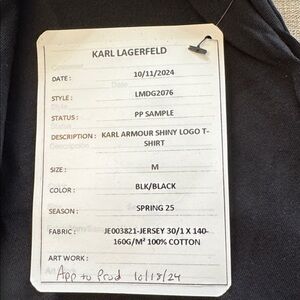 KARL LAGERFELD
DATE : 10/11/2024
STYLE : LMDG2076
STATUS : PP SAMPLE
DESCRIPTION : KARL ARMOUR SHINY LOGO T-
SHIRT
SIZE : M
COLOR : BLK/BLACK
SEASON : SPRING 25
FABRIC : JE003821-JERSEY 30/1 X 140-
160G/M² 100% COTTON
ART WORK :
App to Prod 10/18/24